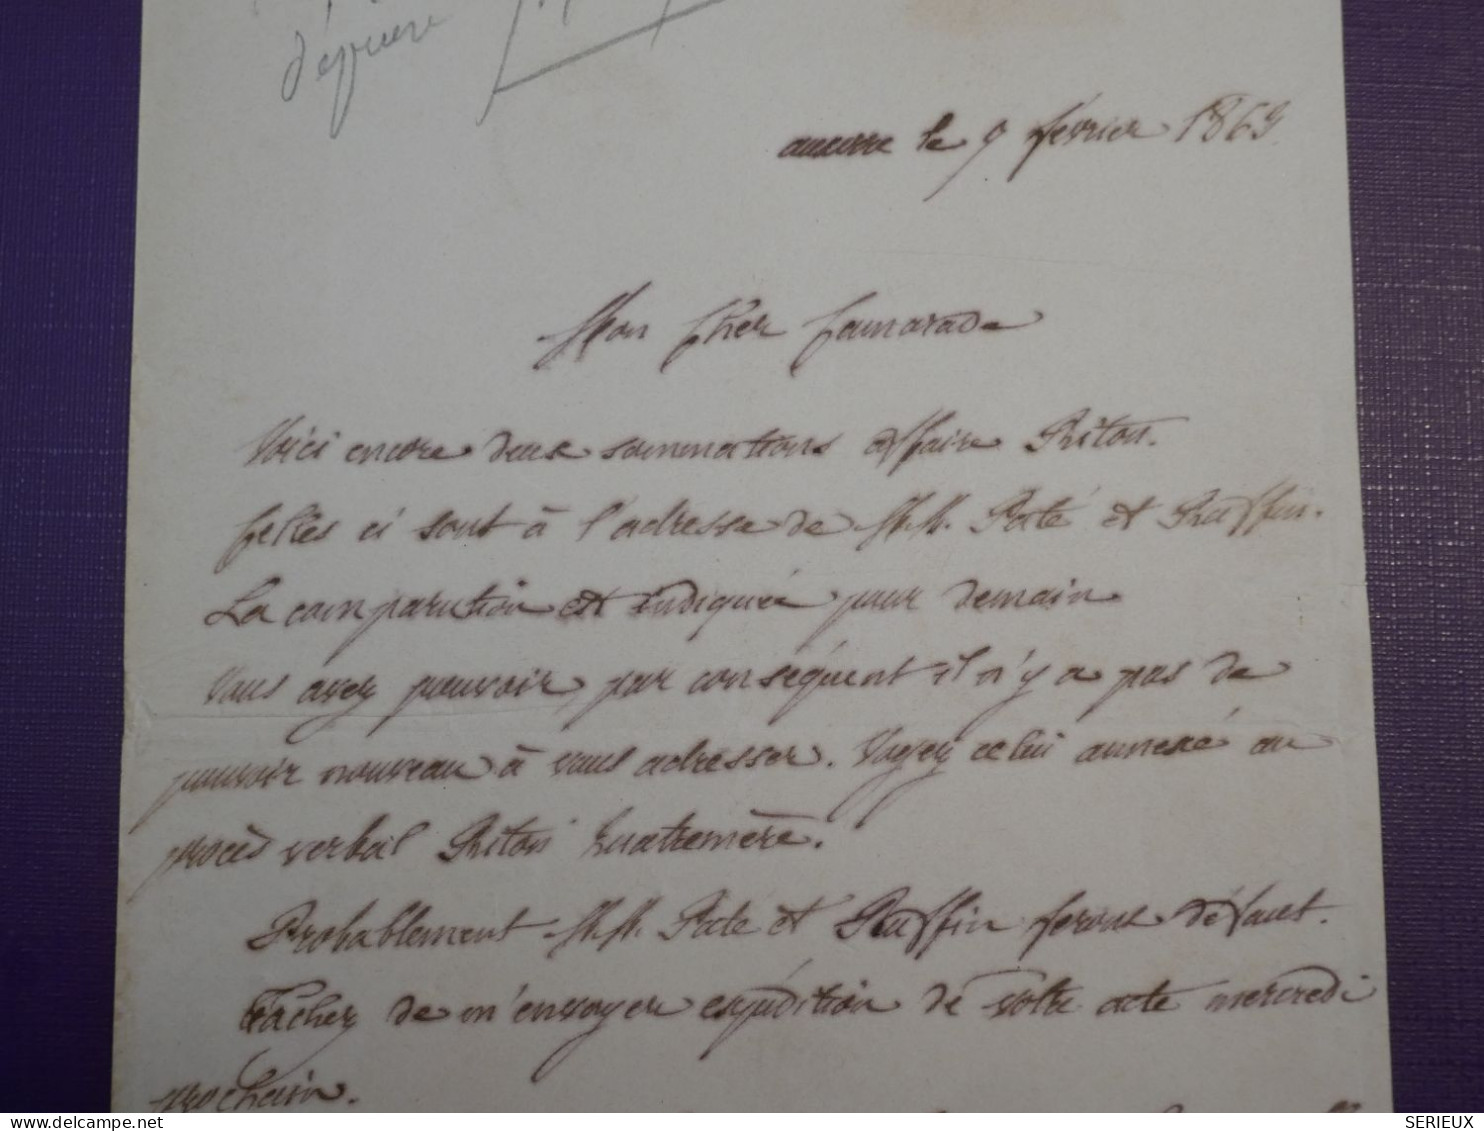 auxerre le 9 février 1869
Mon Cher Camarade
Voici encore deux sommations affaire Piton.
Celles ci sont à l'adresse de M.M. Paté et Ruffin.
La comparution est indiquée pour demain
Vous avez pouvoir, par conséquent il n'y a pas de
pouvoir nouveau à vous adresser. Voyez celui annexé au
procès verbal Piton Quatremère.
Probablement M.M. Paté et Ruffin feront défaut.
Tachez de m'envoyer expédition de votre acte mercredi
prochain.
delcampe.net
SERIEUX